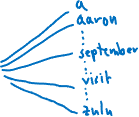 a
aaron
september
visit
zulu